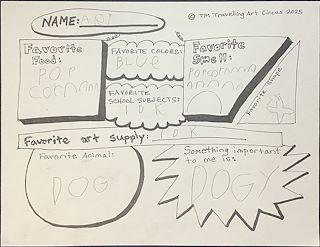 © TM Traveling Art Circus 2025
NAME:
Favorite
Food:
POP
FAVORITE COLORS:
BLUe
FAVORITE
SCHOOL SUBJECTS:
IDK
Favorite
Smell:
Favorite Shape
Favorite art supply: IDK
Favorite Animal:
DOG
Something important
to me is:
DOGY